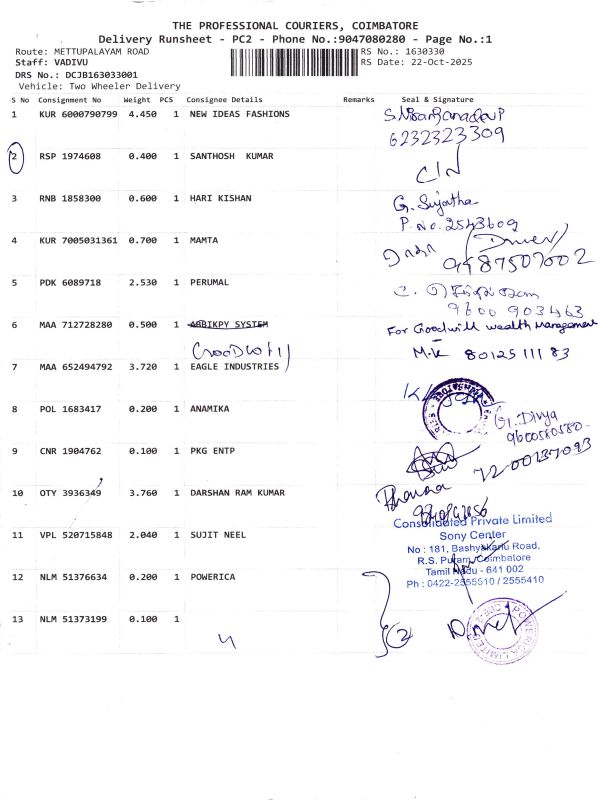 THE PROFESSIONAL COURIERS, COIMBATORE
Delivery Runsheet - PC2 - Phone No.:9047080280 - Page No.:1
Route: METTUPALAYAM ROAD RS No.: 1630330
Staff: VADIVU RS Date: 22-Oct-2025
DRS No.: DCJB163033001
Vehicle: Two Wheeler Delivery
S No Consignment No Weight PCS Consignee Details Remarks Seal & Signature
1 KUR 6000790799 4.450 1 NEW IDEAS FASHIONS
6232323309
2 RSP 1974608 0.400 1 SANTHOSH KUMAR
3 RNB 1858300 0.600 1 HARI KISHAN G. Sujatha
P.No. 2543609
4 KUR 7005031361 0.700 1 MAMTA
9487507002
5 PDK 6089718 2.530 1 PERUMAL
9600 903463
6 MAA 712728280 0.500 1 AGBIKPY SYSTEM For Goodwill wealth Management
M.K 80125 111 83
7 MAA 652494792 3.720 1 EAGLE INDUSTRIES
8 POL 1683417 0.200 1 ANAMIKA
G. Divya
9600580580
9 CNR 1904762 0.100 1 PKG ENTP
7200137093
10 OTY 3936349 3.760 1 DARSHAN RAM KUMAR
Consolidated Private Limited
11 VPL 520715848 2.040 1 SUJIT NEEL Sony Center
No : 181, Bashyakarlu Road,
R.S. Puram, Coimbatore
Tamil Nadu - 641 002
12 NLM 51376634 0.200 1 POWERICA Ph : 0422-2555510 / 2555410
13 NLM 51373199 0.100 1
4 2 POWERICA LIMITED